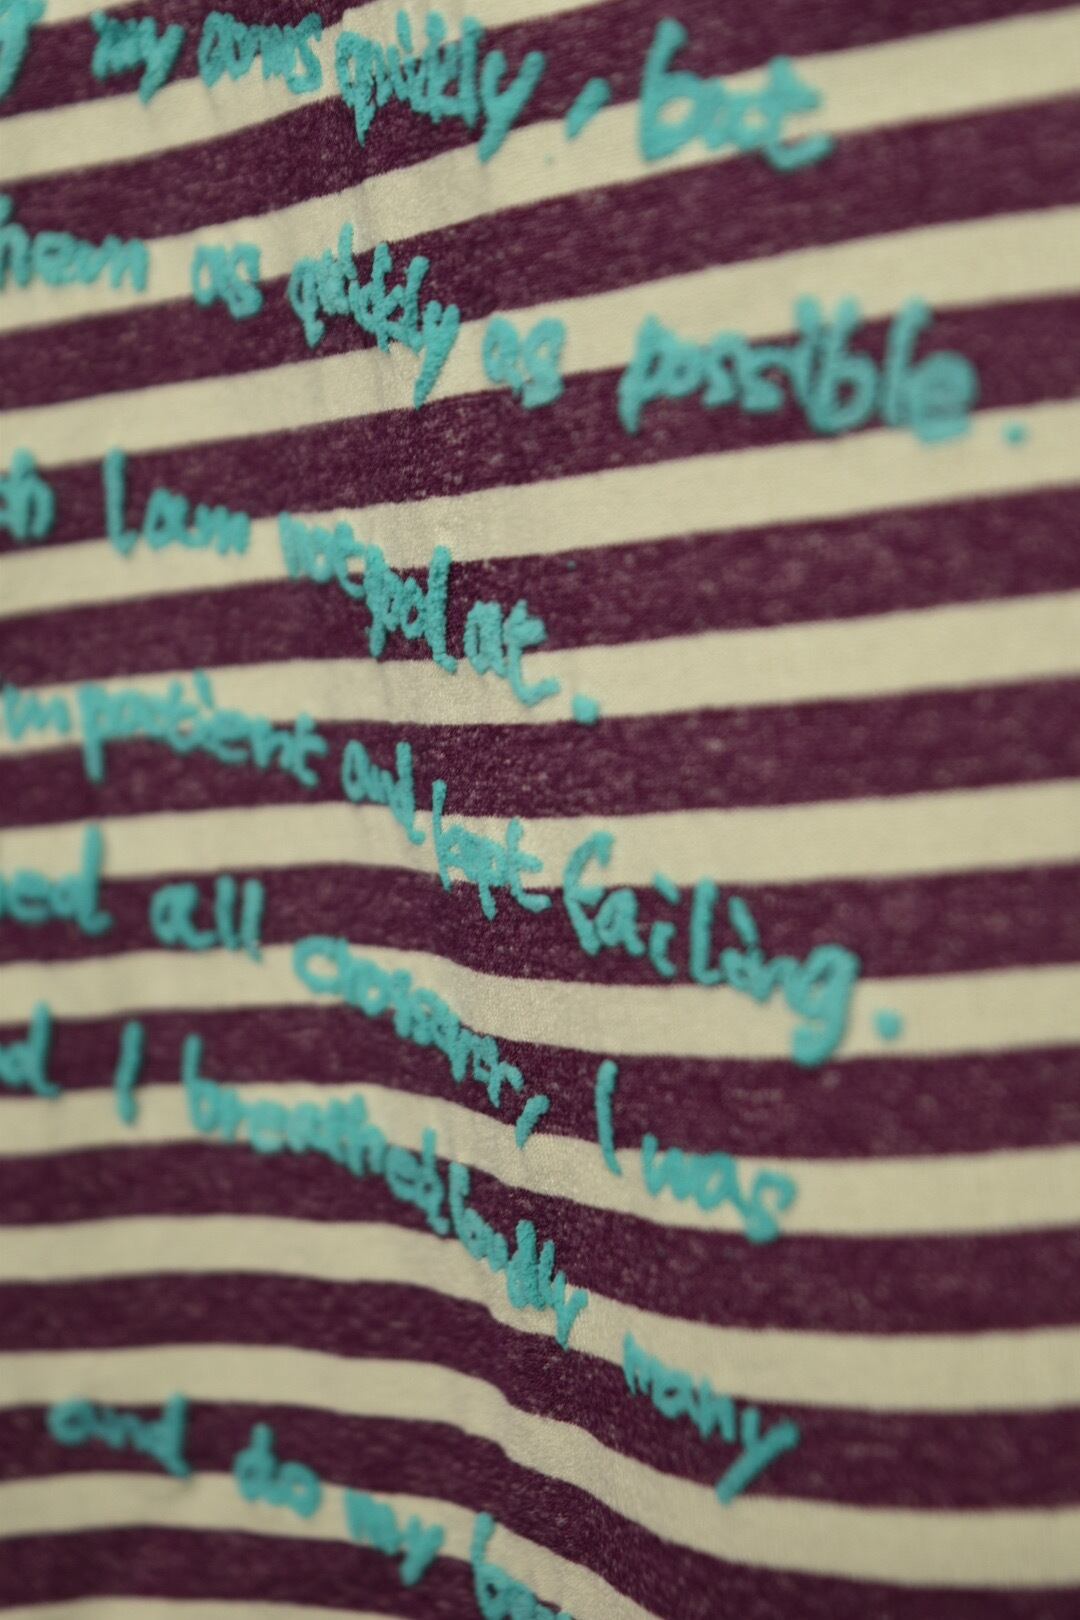 my arms quickly, but
as quickly as possible.
I am not good at.
impatient and kept failing.
all closer, I was
I breathed loudly many
and do my